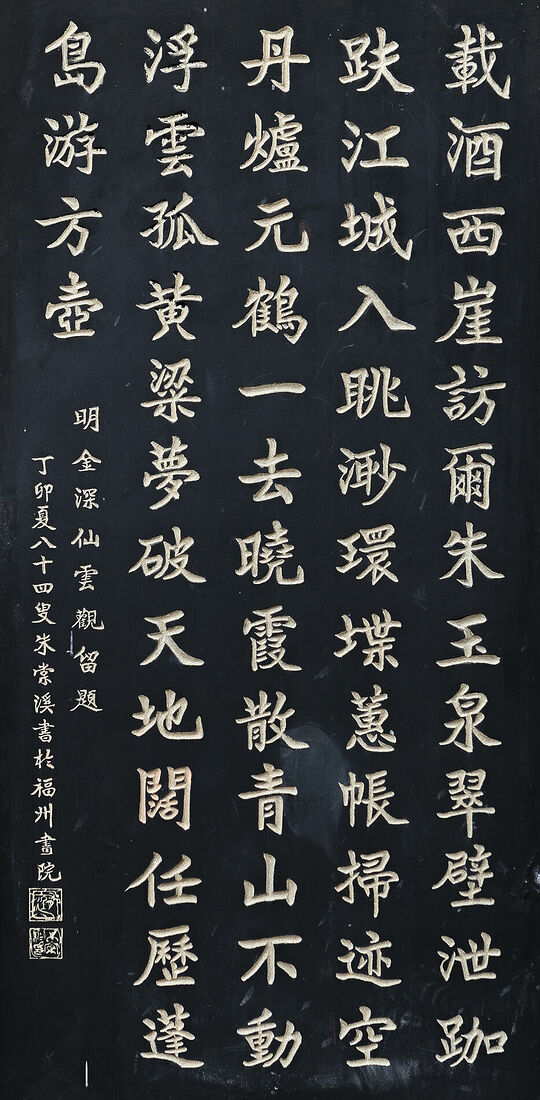 載酒西崖訪爾朱玉泉翠壁泄跏
趺江城入眺渺環堞蕙帳掃迹空
丹爐元鶴一去曉霞散青山不動
浮雲孤黄粱夢破天地闊任歷蓬
島游方壺
明金深仙雲觀留題
丁卯夏八十四叟朱棠溪書於福州畫院